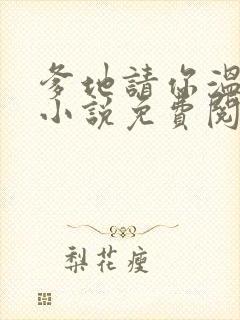 爹地請你溫
小說免費閱
梨花瘦